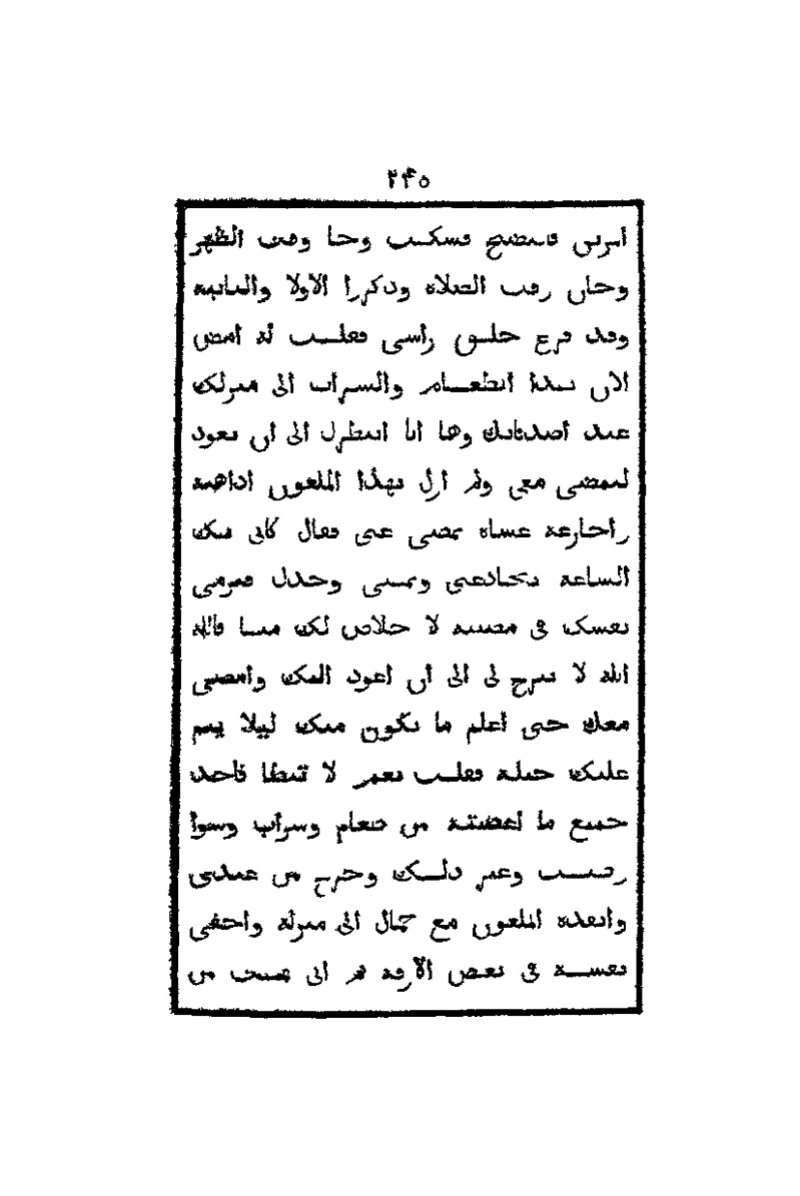 ٢٤٥
امرتى فاستصبح فسكت وجا وقت الظهر
وحان وقت الصلاه وذكروا الاولا والثانيه
وقد فرغ حلق راسى فقلت له امض
الان بهذا الطعام والشراب الى منزلك
عند اصدقائك وها انا انتظرك الى ان تعود
لتمضى معى ولم ازل بهذا الملعون اداهنه
واخادعه عساه يمضى عنى فقال كانى بك
الساعه تخادعنى وتمضى وحدك فترمى
نفسك فى مصيبه لا خلاص لك منها فالله
الله لا تبرح لى الى ان اعود اليك وامضى
معك حتى اعلم ما يكون منك ليلا يتم
عليك حيله فقلت نعم لا تبطا فاخذ
جميع ما اعطيته من طعام وشراب وشوا
وطيب وغير ذلك وخرج من عندى
وانفذه الملعون مع حمال الى منزله واخفى
نفسه فى بعض الازقه ثم انى قمت من